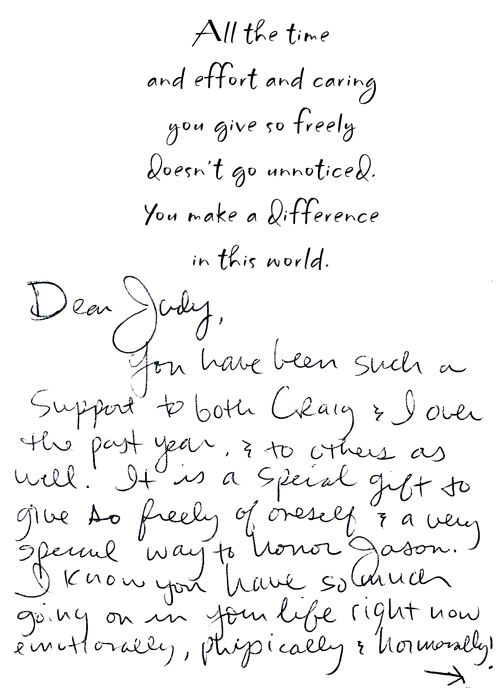 All the time
and effort and caring
you give so freely
doesn't go unnoticed.
You make a difference
in this world.
Dear Judy,
You have been such a
support to both Craig & I over
the past year, & to others as
well. It is a special gift to
give so freely of oneself & a very
special way to honor Jason.
I know you have so much
going on in your life right now
emotionally, physically & hormonally!
→